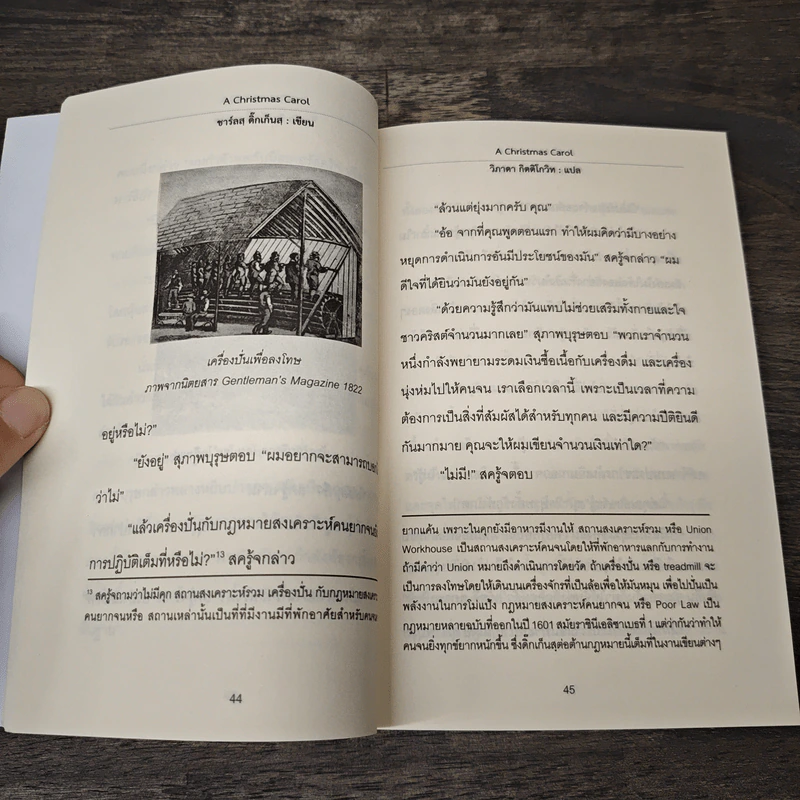 A Christmas Carol
ชาร์ลสฺ ดิ๊กเก็นสฺ : เขียน
เครื่องปั่นเพื่อลงโทษ
ภาพจากนิตยสาร Gentleman's Magazine 1822
อยู่หรือไม่?"
"ยังอยู่" สุภาพบุรุษตอบ "ผมอยากจะสามารถบอก
ว่าไม่"
"แล้วเครื่องปั่นกับกฎหมายสงเคราะห์คนยากจนยัง
การปฏิบัติเต็มที่หรือไม่?"13 สครู้จกล่าว
13 สครู้จถามว่าไม่มีคุก สถานสงเคราะห์รวม เครื่องปั่น กับกฎหมายสงเคราะ
คนยากจนหรือ สถานเหล่านั้นเป็นที่ที่มีงานมีที่พักอาศัยสำหรับคนจน
44
A Christmas Carol
วิภาดา กิตติโกวิท : แปล
"ล้วนแต่ยุ่งมากครับ คุณ"
"อ้อ จากที่คุณพูดตอนแรก ทำให้ผมคิดว่ามีบางอย่าง
หยุดการดำเนินการอันมีประโยชน์ของมัน" สครู้จกล่าว "ผม
ดีใจที่ได้ยินว่ามันยังอยู่กัน"
"ด้วยความรู้สึกว่ามันแทบไม่ช่วยเสริมทั้งกายและใจ
ชาวคริสต์จำนวนมากเลย" สุภาพบุรุษตอบ "พวกเราจำนวน
หนึ่งกำลังพยายามระดมเงินซื้อเนื้อกับเครื่องดื่ม และเครื่อง
นุ่งห่มไปให้คนจน เราเลือกเวลานี้ เพราะเป็นเวลาที่ความ
ต้องการเป็นสิ่งที่สัมผัสได้สำหรับทุกคน และมีความปีติยินดี
กันมากมาย คุณจะให้ผมเขียนจำนวนเงินเท่าใด?"
"ไม่มี!" สครู้จตอบ
ยากแค้น เพราะในคุกยังมีอาหารมีงานให้ สถานสงเคราะห์รวม หรือ Union
Workhouse เป็นสถานสงเคราะห์คนจนโดยให้ที่พักอาหารแลกกับการทำงาน
ถ้ามีคำว่า Union หมายถึงดำเนินการโดยวัด ถ้าเครื่องปั่น หรือ treadmill จะ
เป็นการลงโทษโดยให้เดินบนเครื่องจักรที่เป็นล้อเพื่อให้มันหมุน เพื่อไปปั่นเป็น
พลังงานในการโม่แป้ง กฎหมายสงเคราะห์คนยากจน หรือ Poor Law เป็น
กฎหมายหลายฉบับที่ออกในปี 1601 สมัยราชินีเอลิซาเบธที่ 1 แต่ว่ากันว่าทำให้
คนจนยิ่งทุกข์ยากหนักขึ้น ซึ่งดิ๊กเก็นสฺต่อต้านกฎหมายนี้เต็มที่ในงานเขียนต่างๆ
45